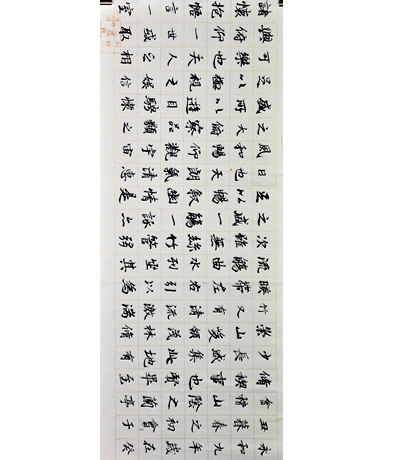 永和九年歲在癸
丑暮春之初會于
會稽山陰之蘭亭
脩禊事也賢畢至
少長咸集此地有
崇山峻領茂林脩
竹又有清流激湍
暎帶左右引以為
流觴曲水列坐其
次雖無絲竹管弦
之盛一觴一詠亦
足以暢敘幽情是
日也天朗氣清惠
風和暢仰觀宇宙
之大俯察品類之
盛所以遊目騁懷
足以極視之娛信
可樂也夫人之相
與俯仰一世或取
諸懷抱悟言一室